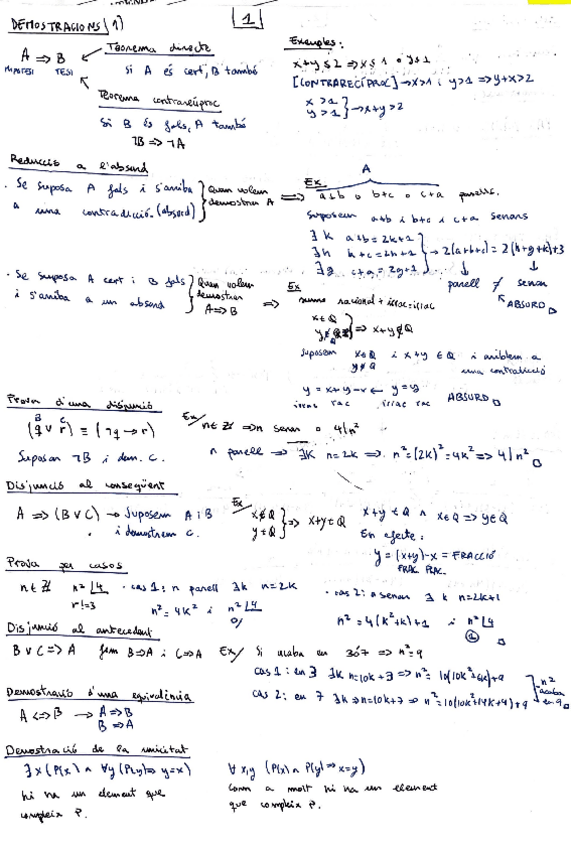 DEMOSTRACIONS (1)
1
A ⇒ B
HIPÒTESI TESI
Teorema directe
Si A és cert, B també
Teorema contrarecíproc
Si B és fals, A també
¬B ⇒ ¬A
Exemples:
x+y≤2 ⇒ x≤1 o y≤1
[CONTRARECÍPROC] → x>1 i y>1 ⇒ y+x>2
x>1
y>1 } → x+y>2
Reducció a l'absurd
· Se suposa A fals i s'arriba
a una contradicció. (absurd)
Quan volem
demostrem A
⇒
Ex.
A
a+b o b+c o c+a parells.
suposem a+b i b+c i c+a senars
∃ k a+b=2k+1
∃ h b+c=2h+1
∃ g c+a=2g+1
→ 2(a+b+c) = 2(h+g+k)+3
parell ≠ senar
ABSURD
· Se suposa A cert i B fals
i s'arriba a un absurd
Quan volem
demostrem
A⇒B
⇒
Ex
suma racional + irrac = irrac
x∈Q
y∉Q } ⇒ x+y∉Q
suposem x∈Q i x+y ∈ Q i arribem a
y∉Q una contradicció
y = x+y-x ← y=y
irrac rac irrac rac ABSURD
Prova d'una disjunció
B C
(q ∨ r) ≡ (¬q → r)
Suposar ¬B i dem. C.
Ex/ n∈Z ⇒ n senar o 4|n²
n parell ⇒ ∃K n=2k ⇒ n²=(2k)²=4k² ⇒ 4|n²
Disjunció al conseqüent
A ⇒ (B ∨ C) → Suposem A i B
i demostrem C.
Ex
x∉Q
y∈Q } ⇒ x+y∈Q
x+y ∈ Q ∧ x∈Q ⇒ y∈Q
En efecte:
y = (x+y)-x = FRACCIÓ
FRAC FRAC.
Prova per casos
n∈Z n² |4
r!=3
· cas 1: n parell ∃k n=2K
n²=4K² i n² |4
0/
· cas 2: n senar ∃ k n=2k+1
n² = 4(k²+k)+1 i n² |4
1
Disjunció al antecedent
B ∨ C ⇒ A fem B⇒A i C⇒A
Ex/ Si acaba en 3 ó 7 ⇒ n²=9
cas 1: en 3 ∃k n=10k+3 ⇒ n²=10(10k²+6k)+9
cas 2: en 7 ∃k ⇒ n=10k+7 ⇒ n²=10(10k²+14k+4)+9
n²
acaba
en 9
Demostració d'una equivalència
A ⇔ B → A⇒B
B⇒A
Demostració de la unicitat
∃x (P(x) ∧ ∀y (P(y) ⇒ y=x)
hi ha un element que
compleix P.
∀x,y (P(x) ∧ P(y) ⇒ x=y)
Com a molt hi ha un element
que compleix P.